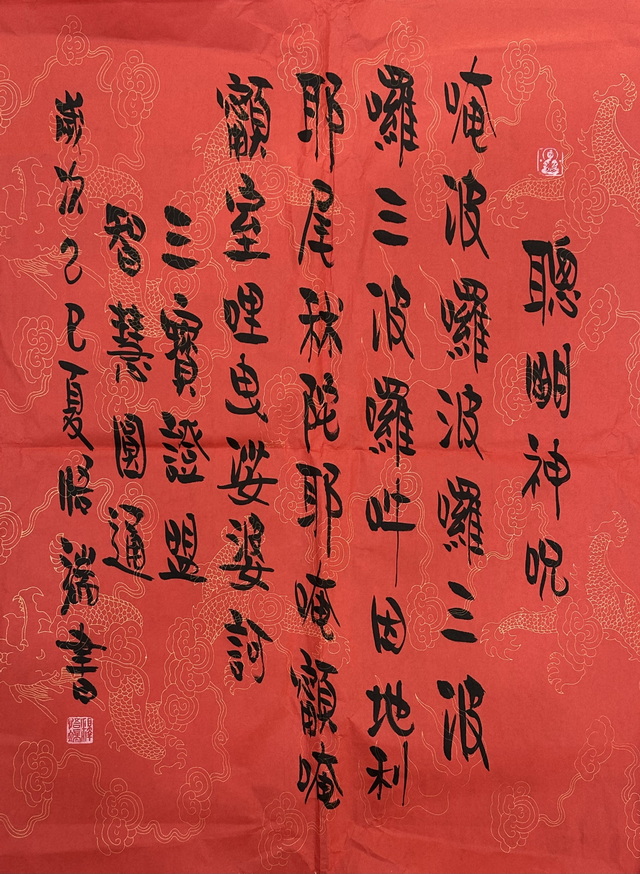 聰明神呪
唵波囉波囉三波
囉三波囉吽因地利
耶尾秫陀耶唵顲唵
顲室哩曳娑婆訶
三寶證盟
智慧圓通
歲次乙巳夏悟瑞書